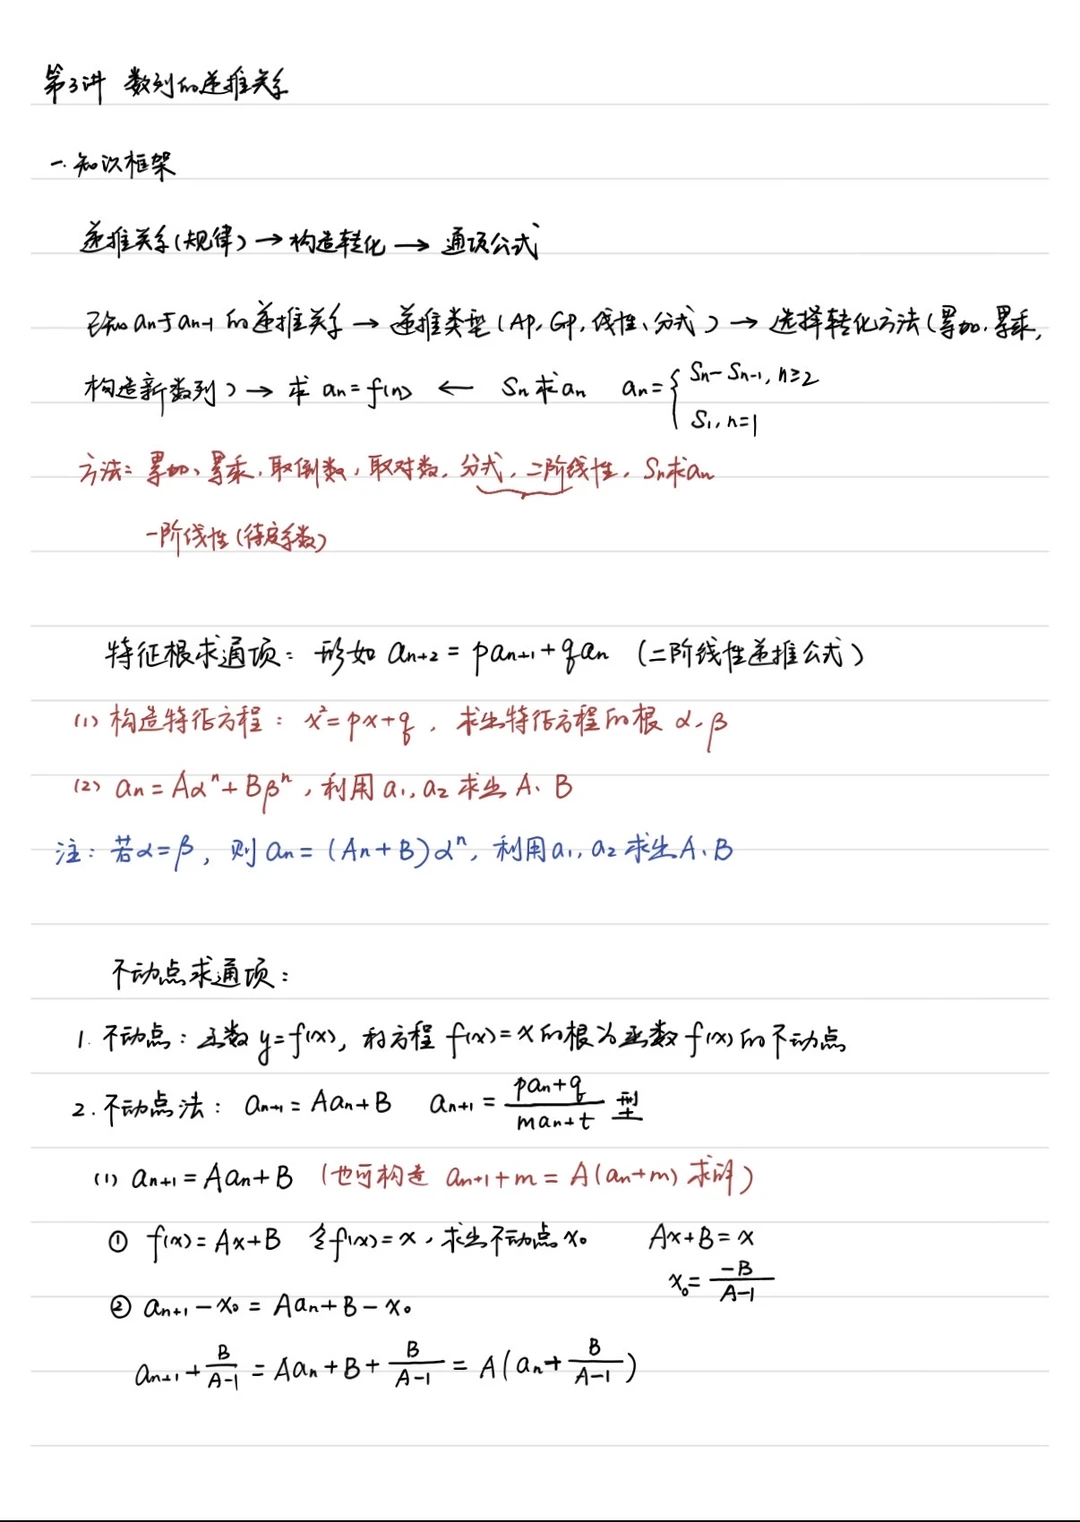 第3讲 数列的递推关系
一.知识框架
递推关系(规律)→构造转化→通项公式
已知an与an-1的递推关系→递推类型(AP,GP,线性、分式)→选择转化方法(累加.累乘,
构造新数列)→求 an=f(n) ← Sn求an an={Sn-Sn-1, n≥2
S1, n=1
方法:累加、累乘,取倒数,取对数,分式,二阶线性,Sn求an
一阶线性(待定系数)
特征根求通项:形如 an+2=pan+1+qan (二阶线性递推公式)
(1)构造特征方程:x²=px+q,求出特征方程的根 α、β
(2) an=Aαⁿ+Bβⁿ,利用a1,a2求出A、B
注:若α=β,则an=(An+B)αⁿ,利用a1,a2求出A、B
不动点求通项:
1.不动点:函数y=f(x),称方程f(x)=x的根为函数f(x)的不动点
2.不动点法:an+1=Aan+B an+1=(pan+q)/(man+t) 型
(1) an+1=Aan+B (也可构造 an+1+m=A(an+m)求解)
① f(x)=Ax+B 令f(x)=x,求出不动点x0 Ax+B=x
x0=-B/(A-1)
② an+1-x0=Aan+B-x0
an+1+B/(A-1)=Aan+B+B/(A-1)=A(an+B/(A-1))